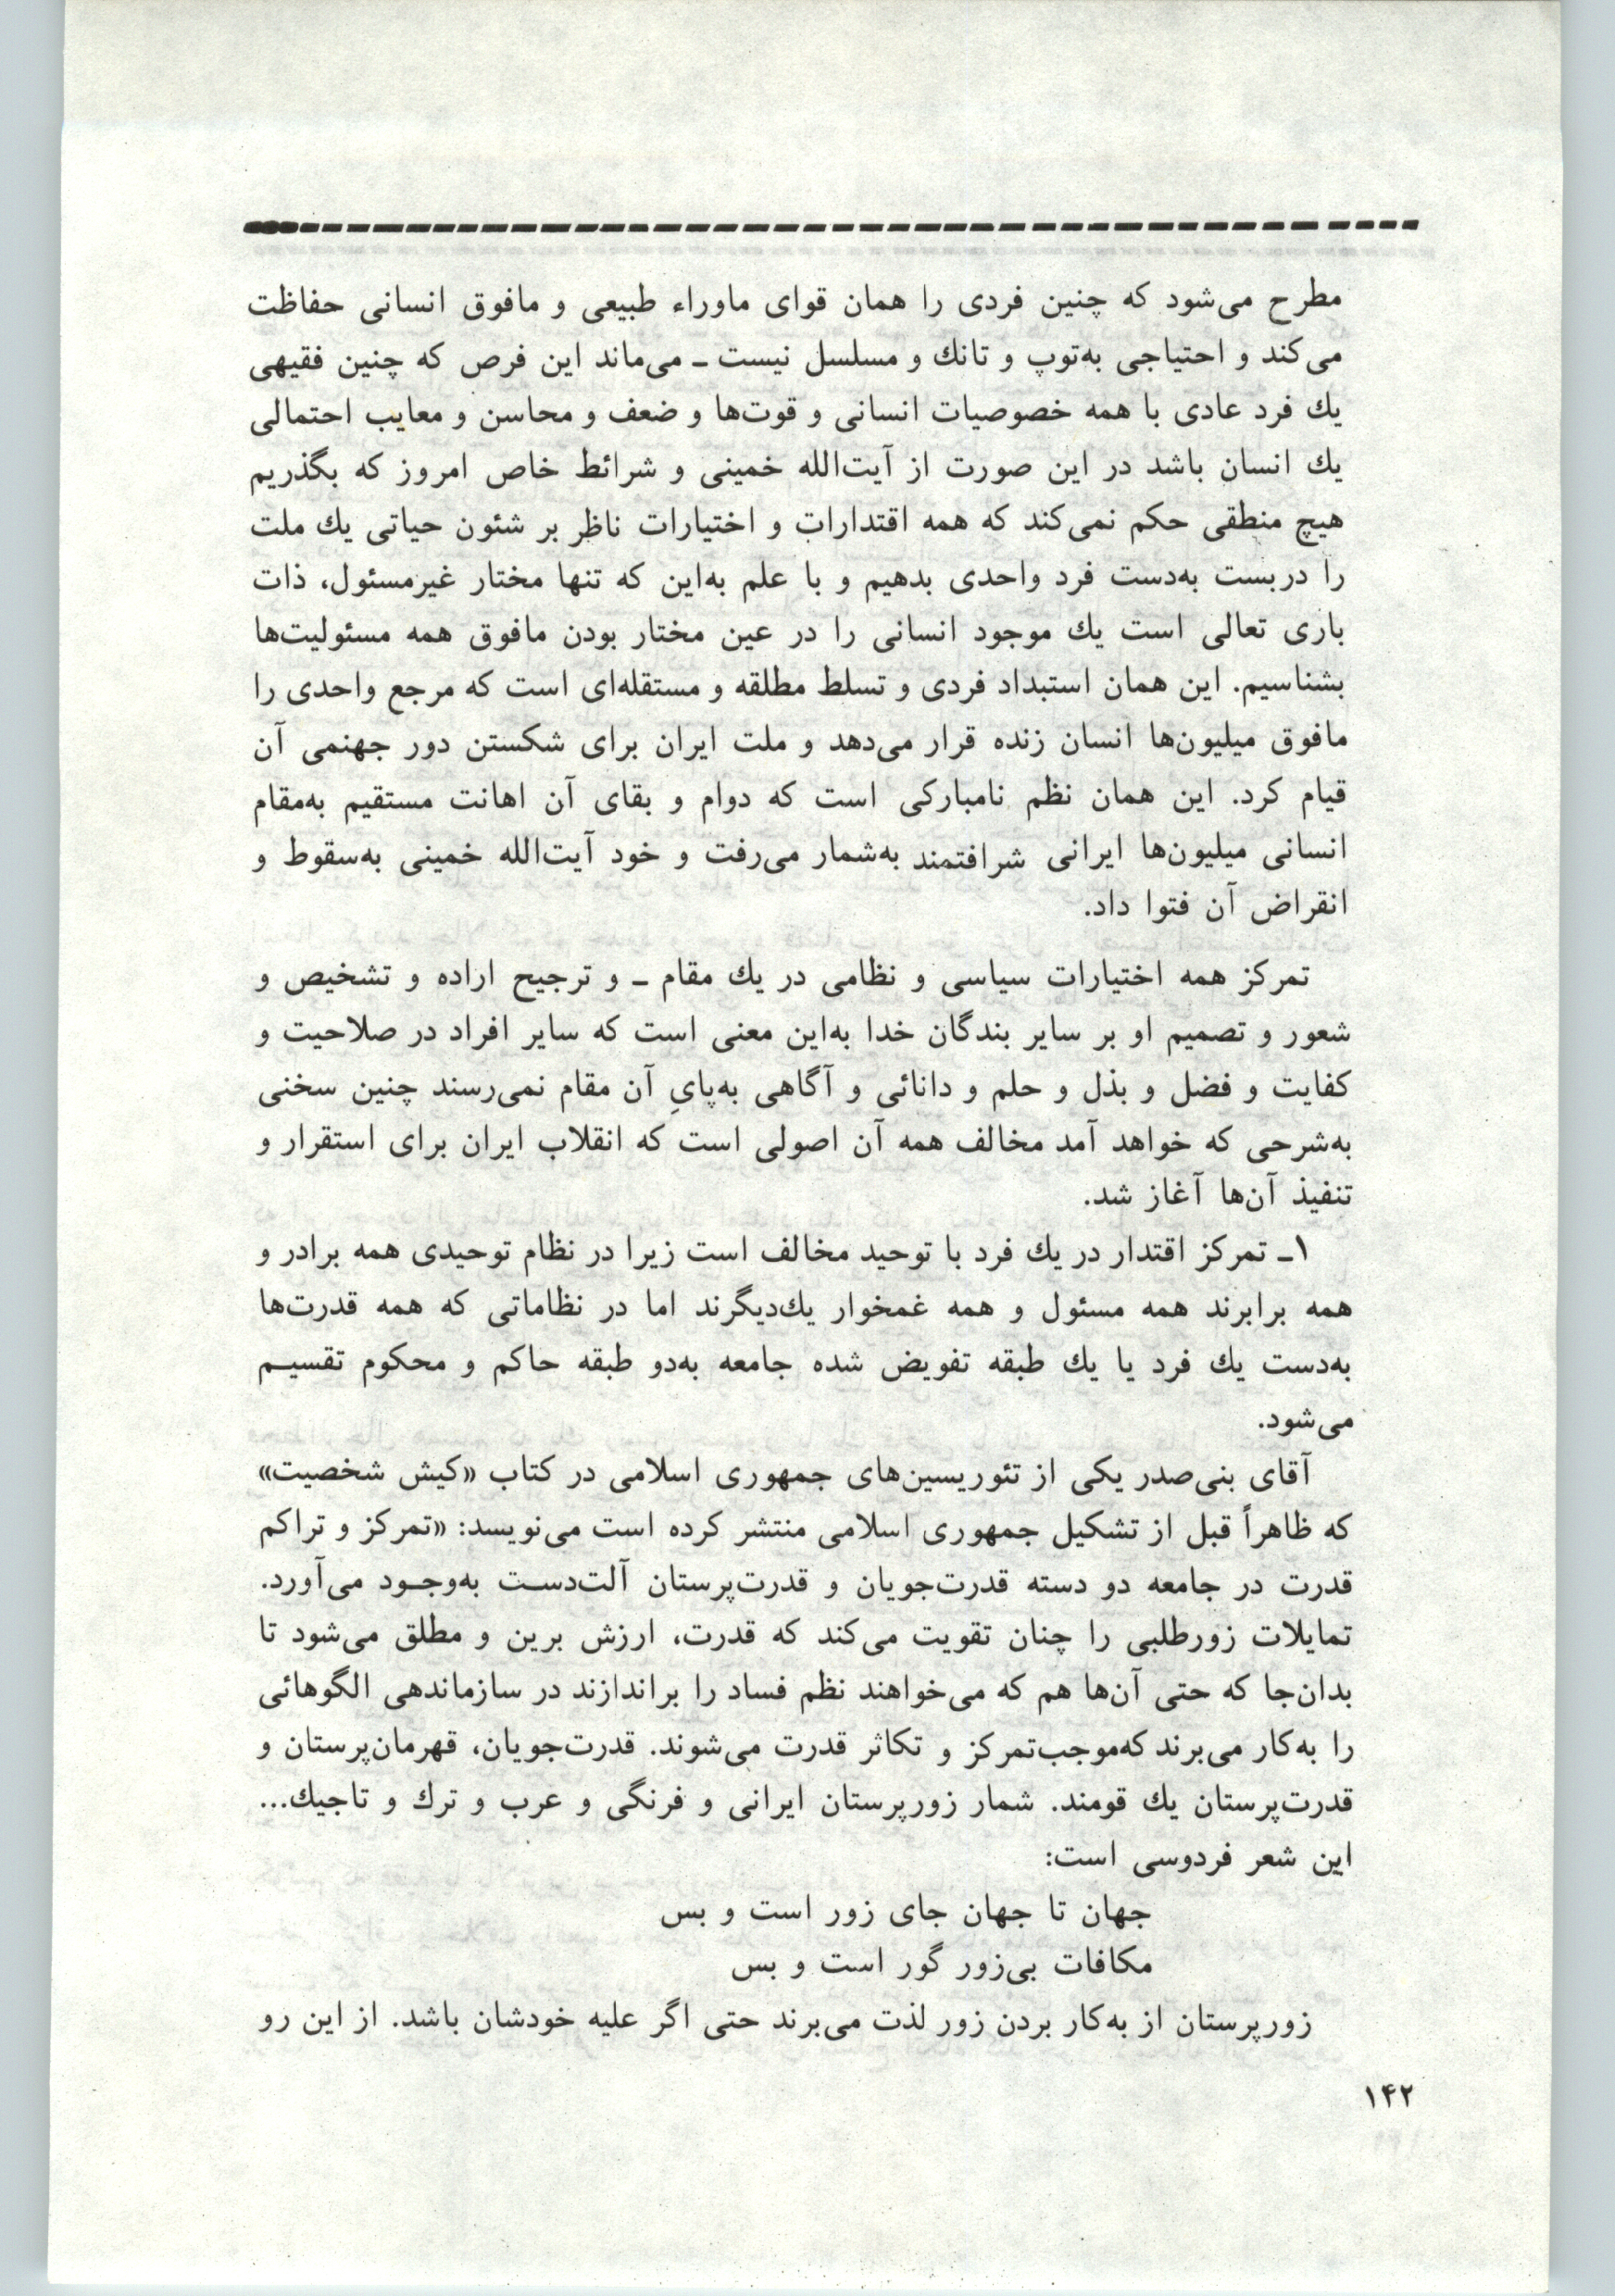 مطرح می‌شود که چنین فردی را همان قوای ماوراء طبیعی و مافوق انسانی حفاظت
می‌کند و احتیاجی به‌توپ و تانك و مسلسل نیست ـ می‌ماند این فرص که چنین فقیهی
یك فرد عادی با همه خصوصیات انسانی و قوت‌ها و ضعف و محاسن و معایب احتمالی
یك انسان باشد در این صورت از آیت‌الله خمینی و شرائط خاص امروز که بگذریم
هیچ منطقی حکم نمی‌کند که همه اقتدارات و اختیارات ناظر بر شئون حیاتی یك ملت
را دربست به‌دست فرد واحدی بدهیم و با علم به‌این که تنها مختار غیرمسئول، ذات
باری تعالی است یك موجود انسانی را در عین مختار بودن مافوق همه مسئولیت‌ها
بشناسیم. این همان استبداد فردی و تسلط مطلقه و مستقله‌ای است که مرجع واحدی را
مافوق میلیون‌ها انسان زنده قرار می‌دهد و ملت ایران برای شکستن دور جهنمی آن
قیام کرد. این همان نظم نامبارکی است که دوام و بقای آن اهانت مستقیم به‌مقام
انسانی میلیون‌ها ایرانی شرافتمند به‌شمار می‌رفت و خود آیت‌الله خمینی به‌سقوط و
انقراض آن فتوا داد.
تمرکز همه اختیارات سیاسی و نظامی در یك مقام ـ و ترجیح اراده و تشخیص و
شعور و تصمیم او بر سایر بندگان خدا به‌این معنی است که سایر افراد در صلاحیت و
کفایت و فضل و بذل و حلم و دانائی و آگاهی به‌پایِ آن مقام نمی‌رسند چنین سخنی
به‌شرحی که خواهد آمد مخالف همه آن اصولی است که انقلاب ایران برای استقرار و
تنفیذ آن‌ها آغاز شد.
۱ـ تمرکز اقتدار در یك فرد با توحید مخالف است زیرا در نظام توحیدی همه برادر و
همه برابرند همه مسئول و همه غمخوار یك‌دیگرند اما در نظاماتی که همه قدرت‌ها
به‌دست یك فرد یا یك طبقه تفویض شده جامعه به‌دو طبقه حاکم و محکوم تقسیـم
می‌شود.
آقای بنی‌صدر یکی از تئوریسین‌های جمهوری اسلامی در کتاب «کیش شخصیت»
که ظاهراً قبل از تشکیل جمهوری اسلامی منتشر کرده است می‌نویسد: «تمرکز و تراکم
قدرت در جامعه دو دسته قدرت‌جویان و قدرت‌پرستان آلت‌دسـت به‌وجـود می‌آورد.
تمایلات زورطلبی را چنان تقویت می‌کند که قدرت، ارزش برین و مطلق می‌شود تا
بدان‌جا که حتی آن‌ها هم که می‌خواهند نظم فساد را براندازند در سازماندهی الگوهائی
را به‌کار می‌برند که‌موجب‌تمرکز و تکاثر قدرت می‌شوند. قدرت‌جویان، قهرمان‌پرستان و
قدرت‌پرستان یك قومند. شمار زورپرستان ایرانی و فرنگی و عرب و ترك و تاجیك...
این شعر فردوسی است:
جهان تا جهان جای زور است و بس
مکافات بی‌زور گور است و بس
زورپرستان از به‌کار بردن زور لذت می‌برند حتی اگر علیه خودشان باشد. از این رو
۱۴۲